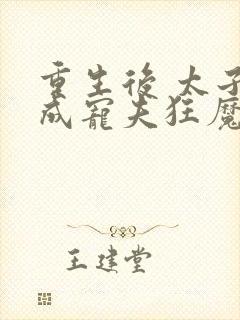 重生後太子
成寵夫狂魔
王建堂